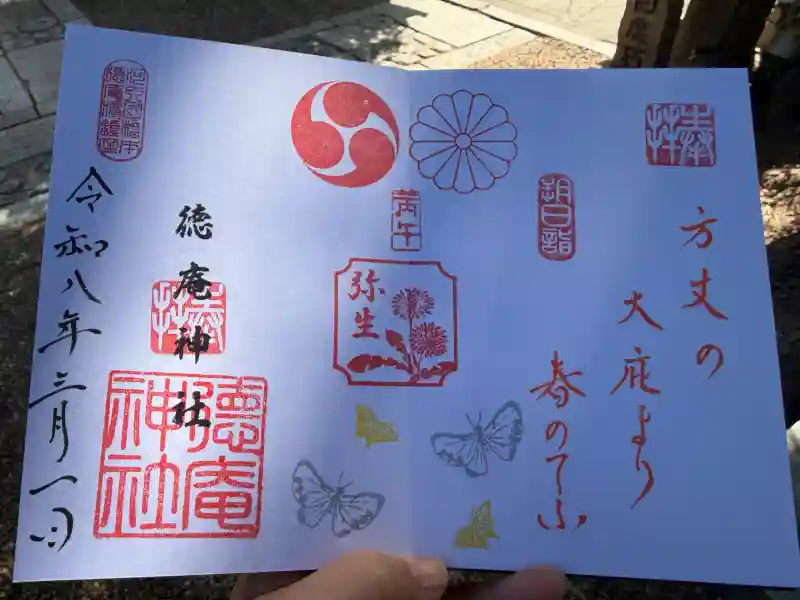 奉拝
方丈の
大庇より
春のてふ
朔日詣
丙午
弥生
徳庵神社
奉拝
徳庵神社
令和八年三月一日